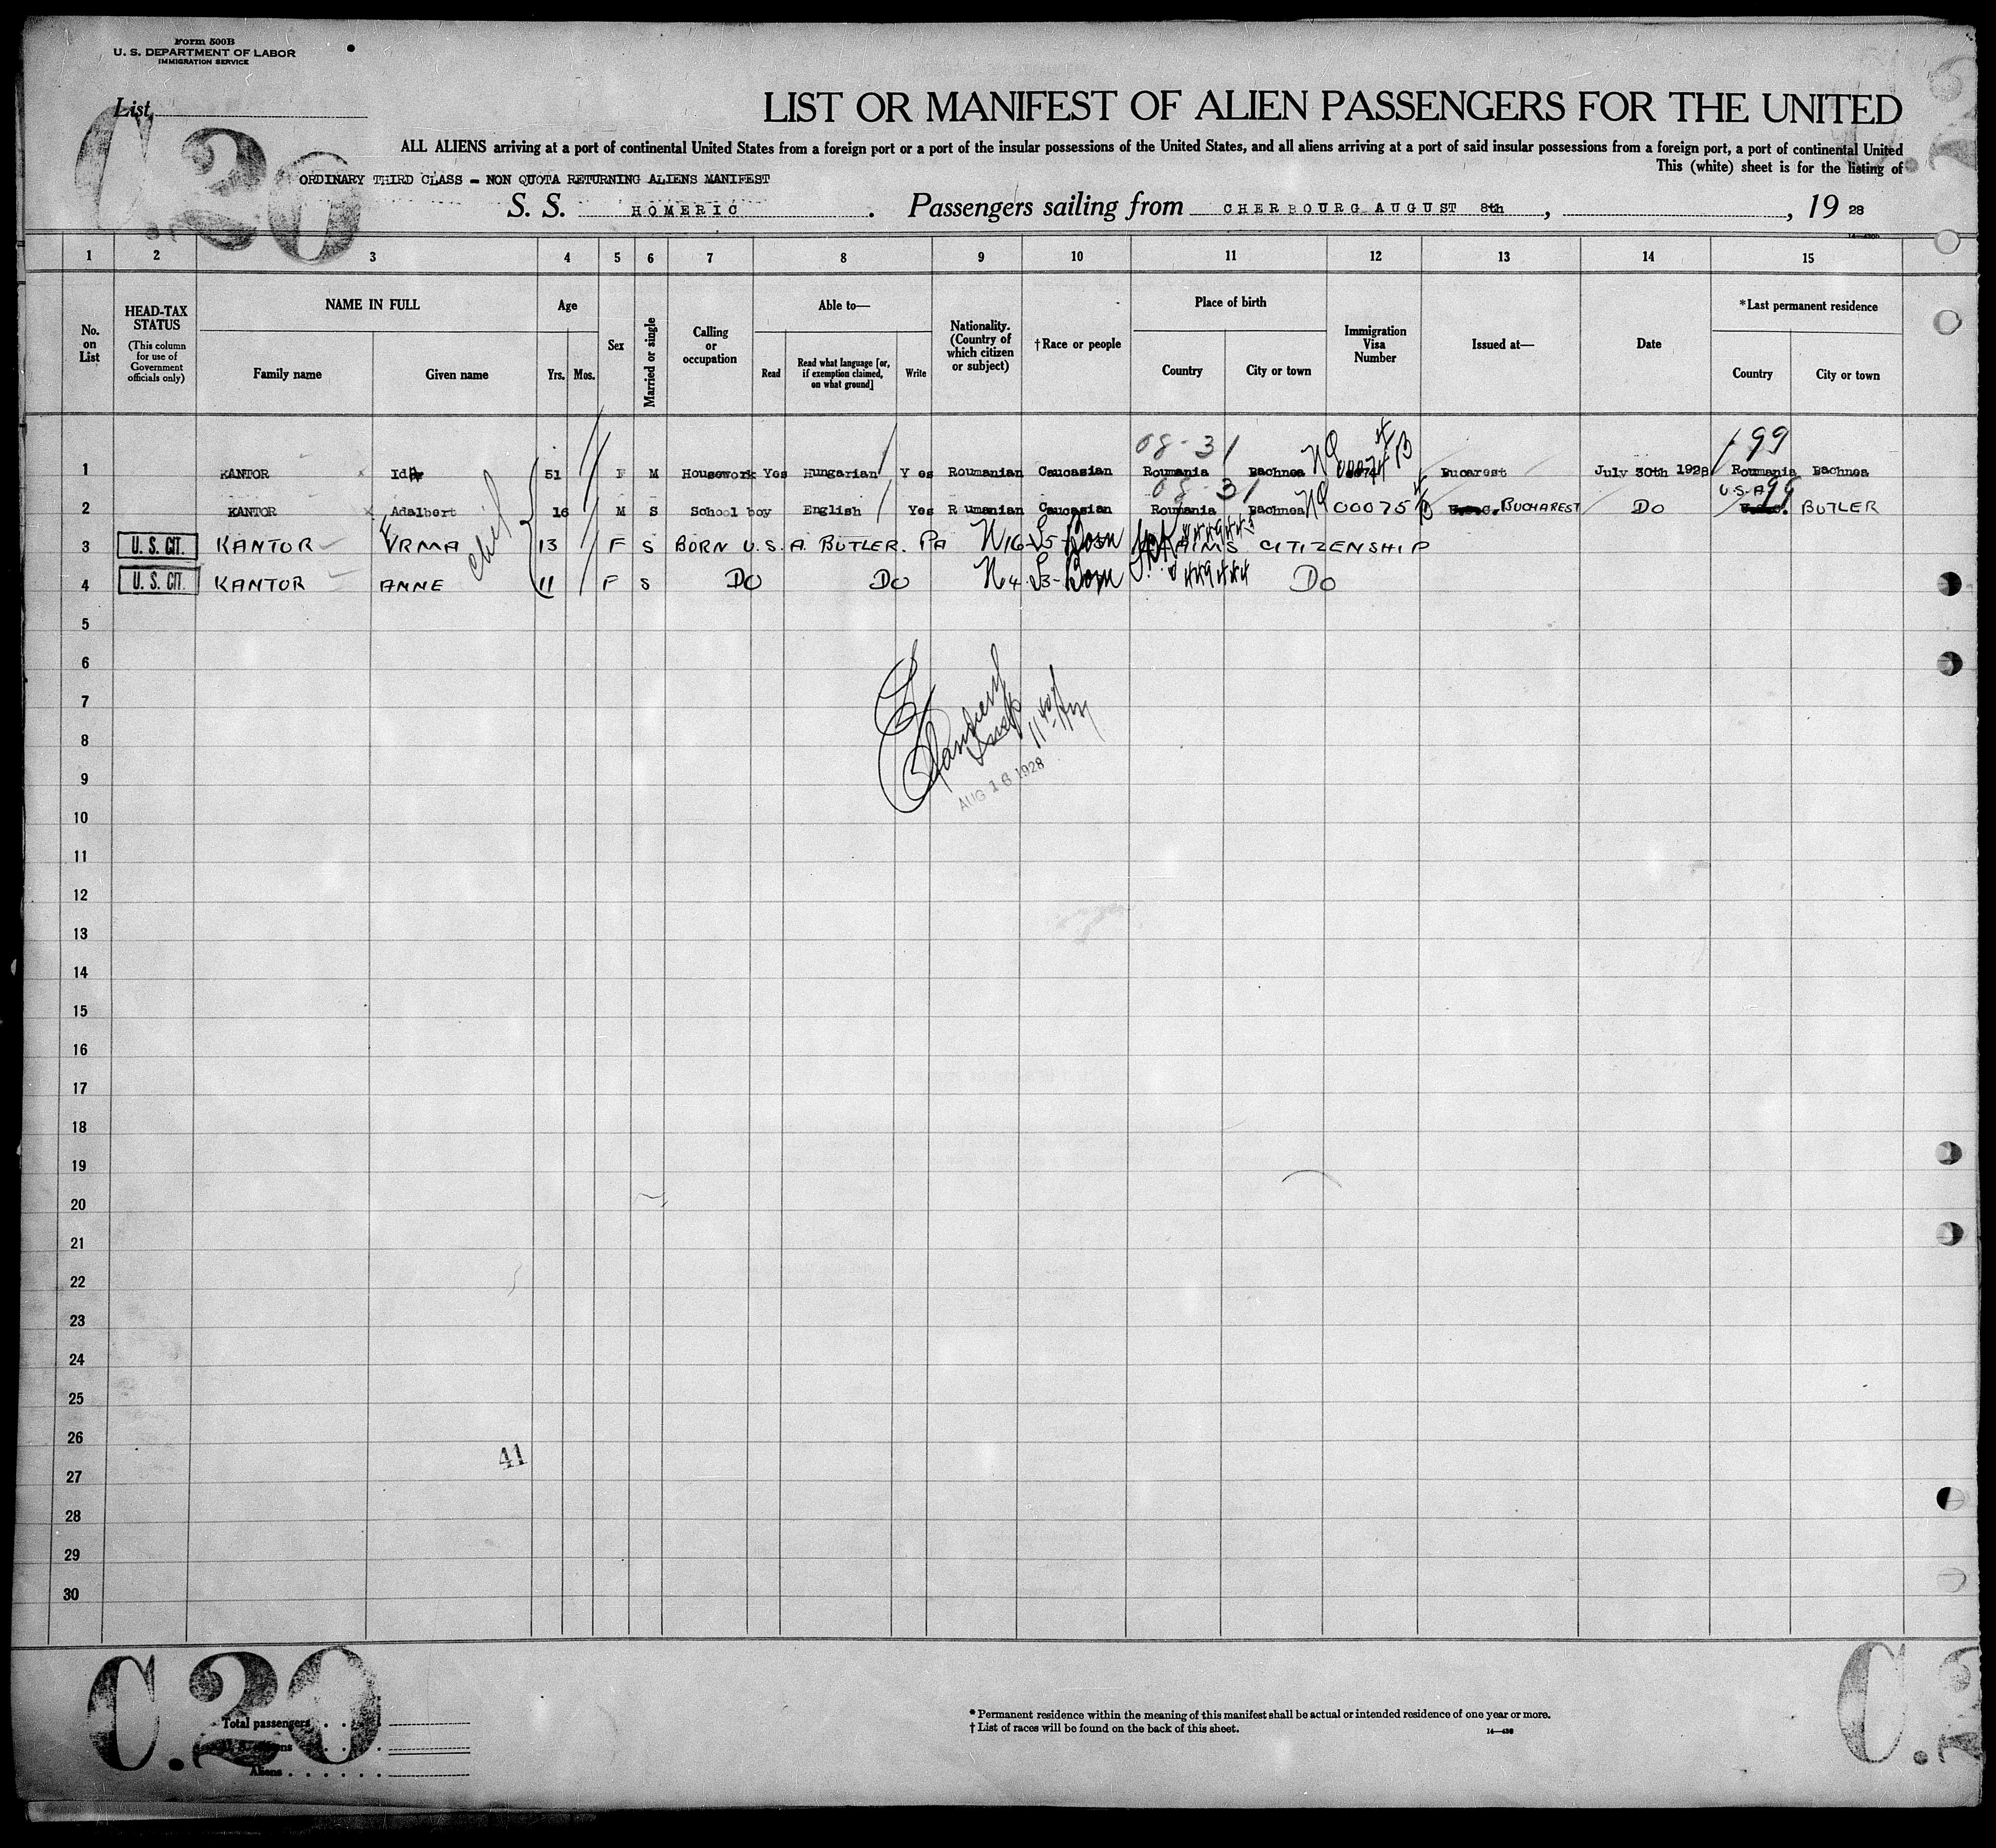 Form 500B
U. S. DEPARTMENT OF LABOR
IMMIGRATION SERVICE
List
C 20
LIST OR MANIFEST OF ALIEN PASSENGERS FOR THE UNITED
ALL ALIENS arriving at a port of continental United States from a foreign port or a port of the insular possessions of the United States, and all aliens arriving at a port of said insular possessions from a foreign port, a port of continental United
This (white) sheet is for the listing of
ORDINARY THIRD CLASS - NON QUOTA RETURNING ALIENS MANIFEST
S. S. HOMERIC. Passengers sailing from CHERBOURG AUGUST 8th, , 19 28
1 2 3 4 5 6 7 8 9 10 11 12 13 14 15
No. on List
HEAD-TAX STATUS (This column for use of Government officials only)
NAME IN FULL
Family name
Given name
Age
Yrs. Mos.
Sex
Married or single
Calling or occupation
Able to—
Read
Read what language [or, if exemption claimed, on what ground]
Write
Nationality. (Country of which citizen or subject)
†Race or people
Place of birth
Country
City or town
Immigration Visa Number
Issued at—
Date
*Last permanent residence
Country
City or town
08-31 199
1 KANTOR Ida 51 F M Housework Yes Hungarian Yes Roumanian Caucasian Roumania Bachnea NQ 00074 Bucarest July 30th 1928 Roumania Bachnea
08-31 U.S.A. 99
2 KANTOR Adalbert 16 M S School boy English Yes R umanian Caucasian Roumania Bachnea NQ 00075 BUCHAREST DO BUTLER
3 U. S. CIT. KANTOR YRMA 13 F S BORN U.S.A. BUTLER. PA CLAIMS CITIZENSHIP
4 U. S. CIT. KANTOR ANNE 11 F S DO DO DO
5
6
7
8
9
AUG 16 1928
10
11
12
13
14
15
16
17
18
19
20
21
22
23
24
25
26
41
27
28
29
30
C.20
Total passengers
Aliens
* Permanent residence within the meaning of this manifest shall be actual or intended residence of one year or more.
† List of races will be found on the back of this sheet.
14—430
C.2